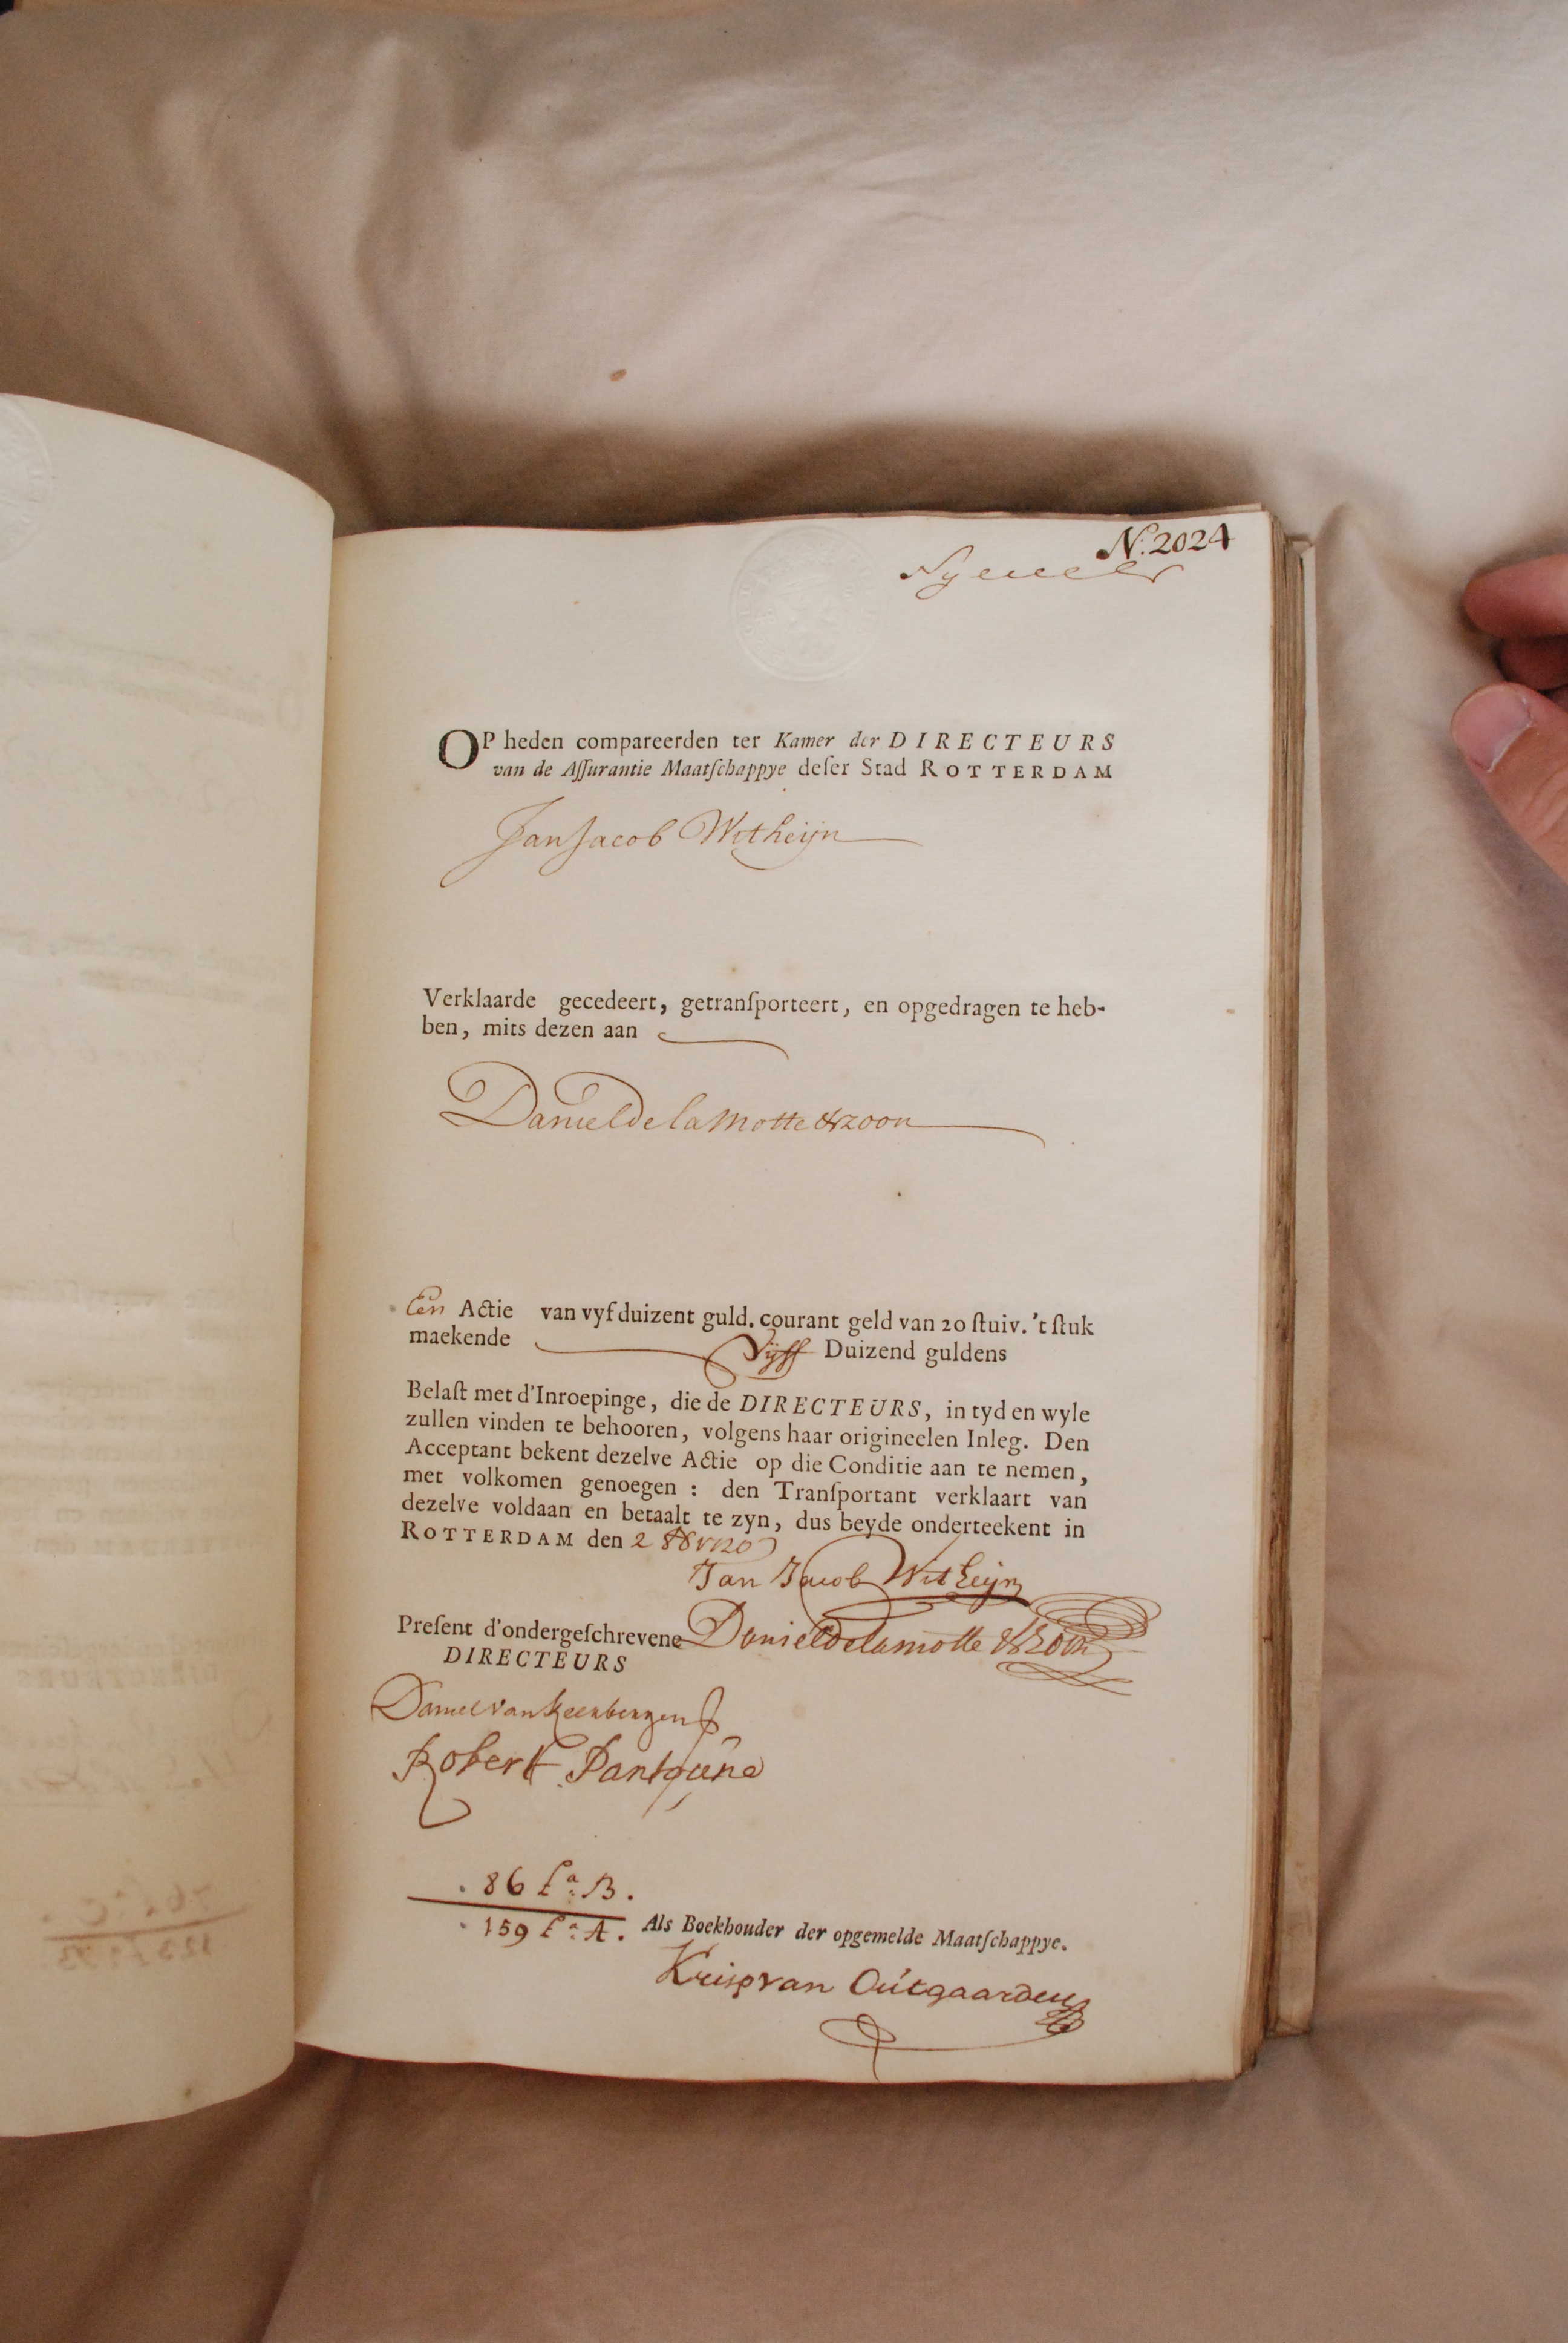 N. 2024
OP heden compareerden ter Kamer der DIRECTEURS
van de Aſſurantie Maatſchappye deſer Stad ROTTERDAM
Jan Jacob Witheijn
Verklaarde gecedeert, getranſporteert, en opgedragen te heb-
ben, mits dezen aan
Daniel de la Motte & zoon
Een Actie van vyf duizent guld. courant geld van 20 ſtuiv. 't ſtuk
maekende Vijff Duizend guldens
Belaſt met d'Inroepinge, die de DIRECTEURS, in tyd en wyle
zullen vinden te behooren, volgens haar origineelen Inleg. Den
Acceptant bekent dezelve Actie op die Conditie aan te nemen,
met volkomen genoegen : den Tranſportant verklaart van
dezelve voldaan en betaalt te zyn, dus beyde onderteekent in
ROTTERDAM den 2
Jan Jacob Witheijn
Preſent d'ondergeſchrevene Daniel de la motte & Zoon
DIRECTEURS
Robert
86 La B.
159 La A. Als Boekhouder der opgemelde Maatſchappye.
van Outgaarden